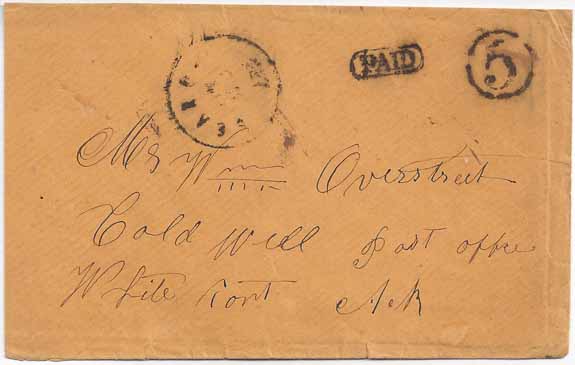 PAID
5
SEARC
Mr Wm Overstreet
Cold Well Post office
White Cont Ark